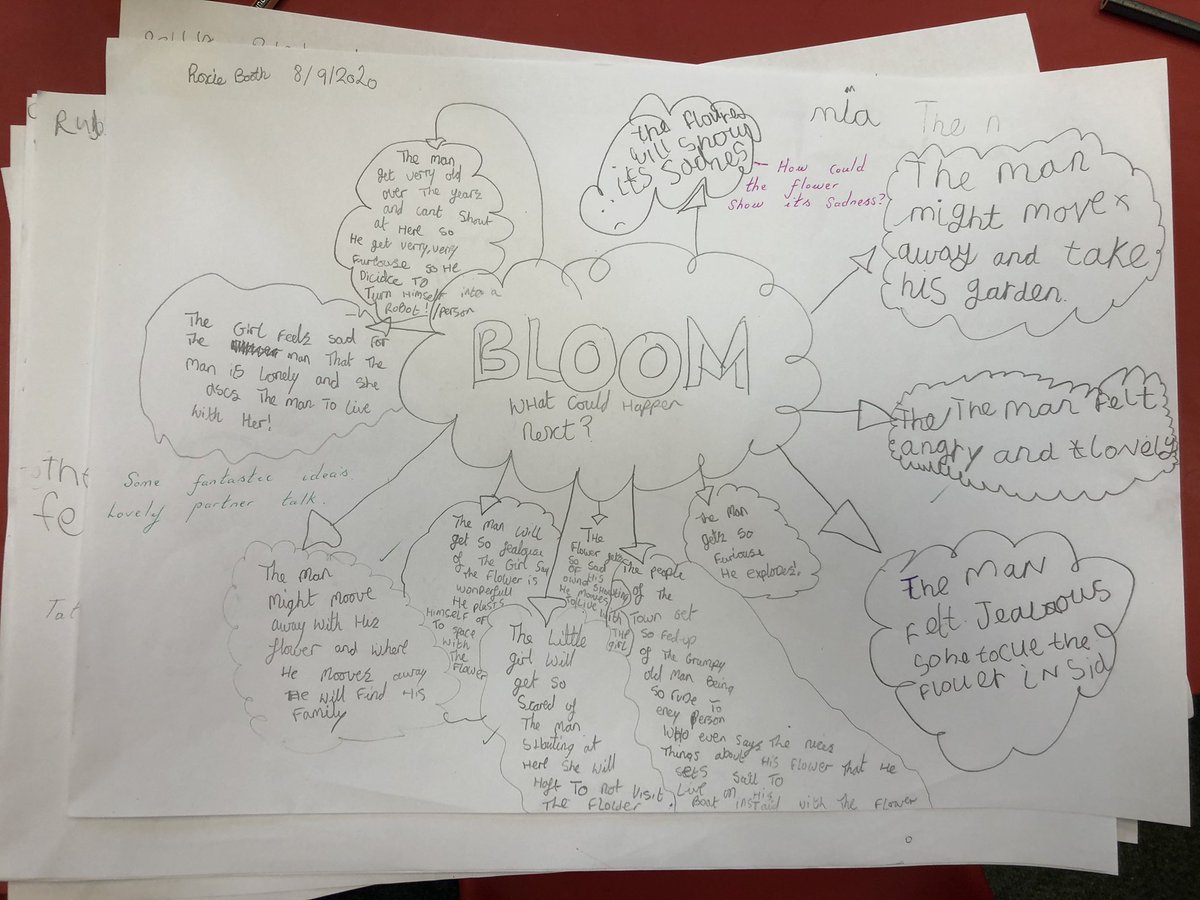 Roxie Booth 8/9/2020
Rub
mia
The n
The man
get verry old
over The years
and cant Shout
at Here So
He get verry, very
Furiouse so He
Dicidce To
Turn Himself into a
RoBot! /person
the flowres
will show
its Sadnes
How could
the flower
show its sadness?
The man
might move
away and take
his garden.
The Girl Feels sad for
The man That The
man is Lonely and she
ascs The man To Live
with Her!
BLOOM
WHat Could Happen
Next?
The The man Felt
angry and lovely
Some fantastic ideas.
Lovely partner talk.
the
fe
Tat
The man
Might moove
away with His
flower and where
He Mooves away
He will Find His
Family
The Man Will
get So Jealouse
of The Girl Say
The Flower is
wonderfull
He plasts
Himself of
To space
with
The
Flower
THe
Flower gets
So Sad
OF His
owner shouting
He mooves
To Live with
THe
girl
The Little
girl will
get So
Scared of
The man
Shouting at
Here She will
Haft To not visit
The Flower.
The people
of the
Town get
So Fed-up
of The Grumpy
old man Being
So rude To
every person
WHo even says The nices
Things about His Flower That He
sets Sail To
Live on His
Boat instaid with The Flower
The Man
gets So
Furiouse
He explodes!
The MAN
Felt Jealaous
so he tocue the
Flower iN Sid